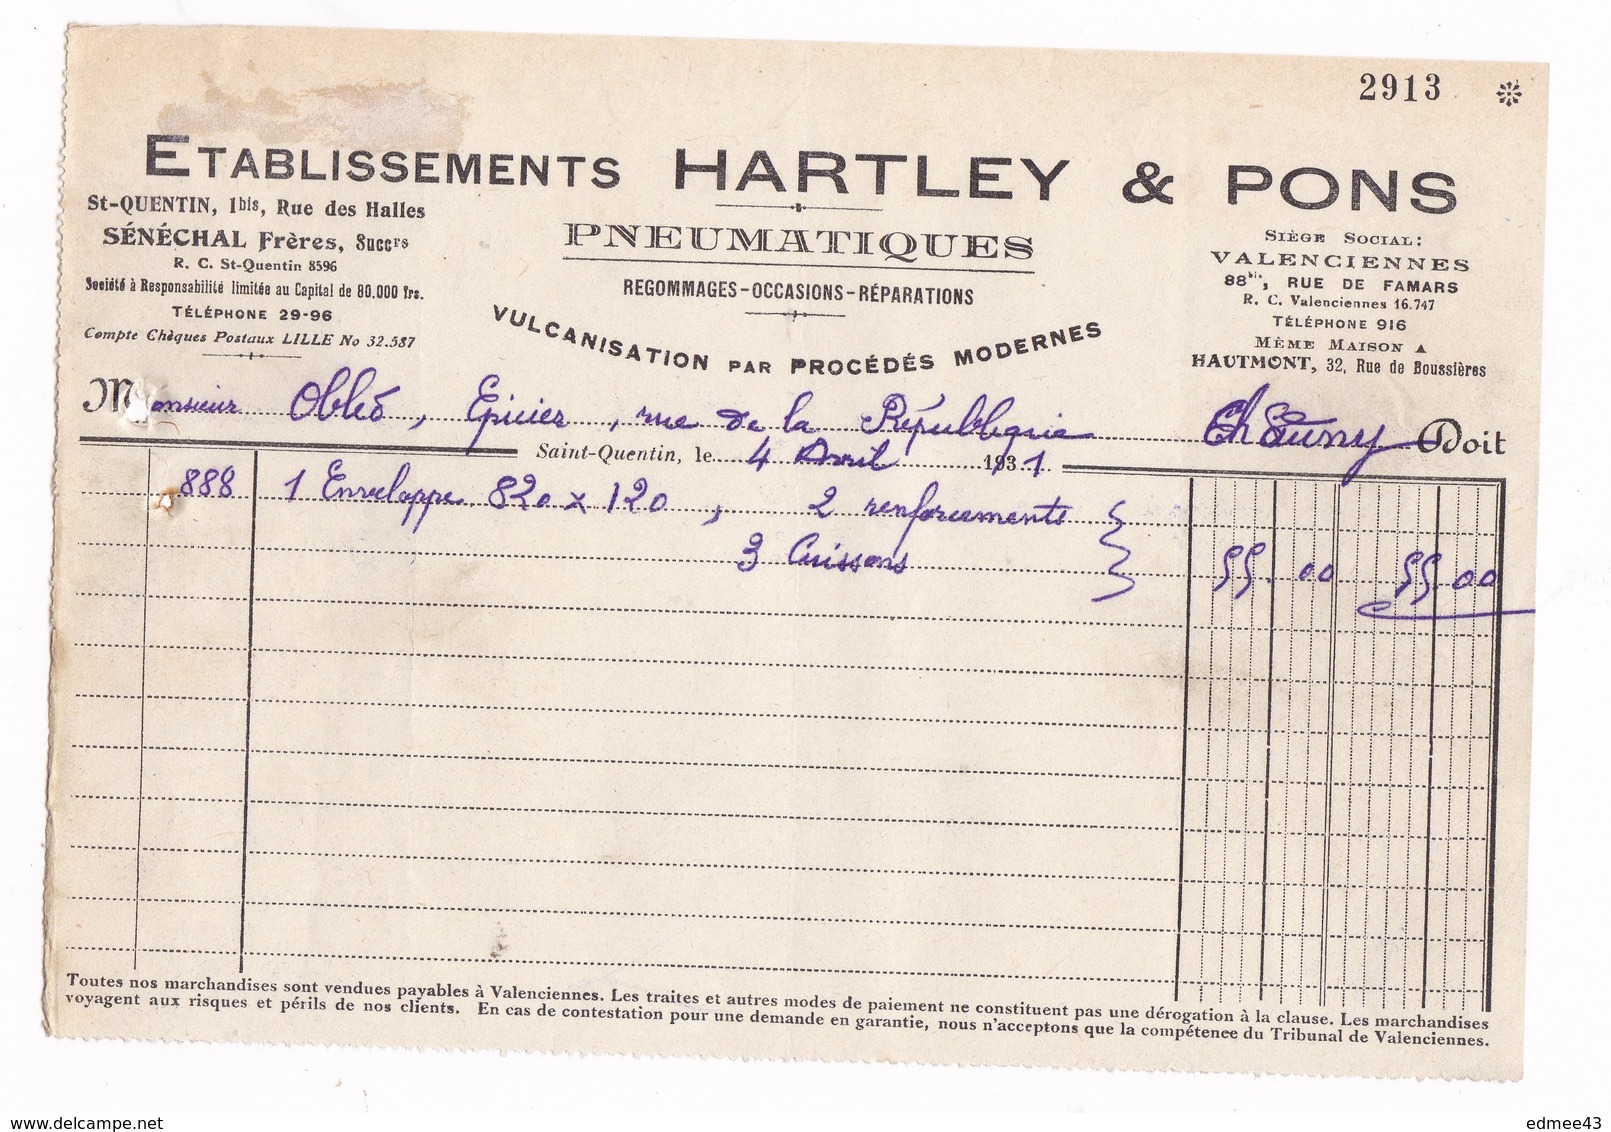 2913
ETABLISSEMENTS HARTLEY & PONS
St-QUENTIN, 1bis, Rue des Halles
SÉNÉCHAL Frères, Succrs
R. C. St-Quentin 8596
Société à Responsabilité limitée au Capital de 80.000 frs.
TÉLÉPHONE 29-96
Compte Chèques Postaux LILLE No 32.587
PNEUMATIQUES
REGOMMAGES-OCCASIONS-RÉPARATIONS
VULCANISATION PAR PROCÉDÉS MODERNES
SIÈGE SOCIAL:
VALENCIENNES
88bis, RUE DE FAMARS
R. C. Valenciennes 16.747
TÉLÉPHONE 916
MÊME MAISON A
HAUTMONT, 32, Rue de Boussières
Monsieur Obléo, Epicier, rue de la République Chauny Doit
Saint-Quentin, le 4 Avril 1931
888 1 Enveloppe 820 x 120, 2 renforcements
3 Cuissons 55.00 55.00
Toutes nos marchandises sont vendues payables à Valenciennes. Les traites et autres modes de paiement ne constituent pas une dérogation à la clause. Les marchandises
voyagent aux risques et périls de nos clients. En cas de contestation pour une demande en garantie, nous n'acceptons que la compétence du Tribunal de Valenciennes.
www.delcampe.net
edmee43